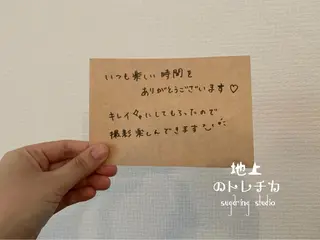 いつも楽しい時間を
ありがとうございます♡
キレイ々にしてもらったので
撮影楽しんできます
地上
のトレチカ
sugaring studio